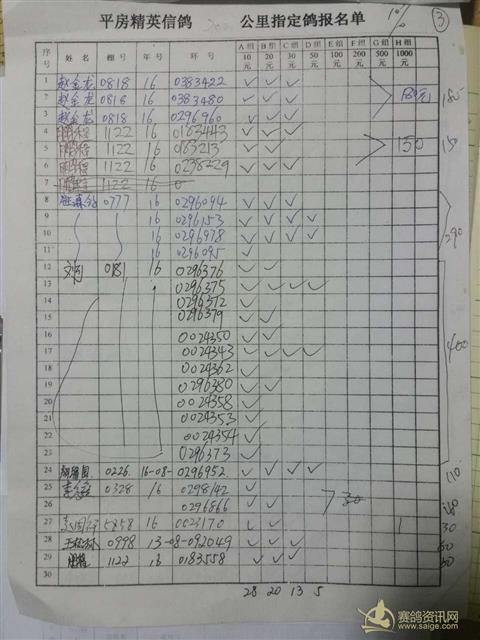 10%
平房精英信鸽 200 公里指定鸽报名单 ③
序号 姓名 棚号 年号 环号 A组10元 B组20元 C组30元 D组50元 E组100元 F组200元 G组500元 H组1000元
1 赵金龙 0818 16 0383422 ✓ ✓ ✓
2 赵金龙 0818 16 0383480 ✓ ✓ ✓ 180元 180
3 赵金龙 0818 16 0296960 ✓ ✓ ✓
4 1122 16 0183443 ✓ ✓ ✓
5 1122 16 0183213 ✓ ✓ 150 150
6 1122 16 0238229 ✓ ✓ ✓
7 1122 16 0
8 0777 16 0296094 ✓ ✓ ✓
9 16 0296153 ✓ ✓ ✓ ✓
10 16 0296978 ✓ ✓ ✓ ✓ 290
11 16 0296095 ✓
12 0181 16 0296376 ✓ ✓
13 0296375 ✓ ✓ ✓ ✓
14 0296372 ✓
15 0296379 ✓ ✓
16 0024350 ✓ ✓
17 0024343 ✓ ✓ ✓ ✓ 400
18 0024362 ✓
19 0296380 ✓ ✓
20 0024358 ✓
21 0024353 ✓
22 0024354 ✓
23 0296373 ✓
24 0226 16-08- 0296952 ✓ ✓ ✓ ✓ 110
25 0328 16 0298142 ✓ ✓
26 0296866 ✓ ✓
27 5858 16 0023170 ✓ ✓ 30
28 0998 13-08-092049 ✓ ✓ ✓
29 1122 16 0183558 ✓ ✓ ✓
30
28 20 13 5
赛鸽资讯网
www.saige.com